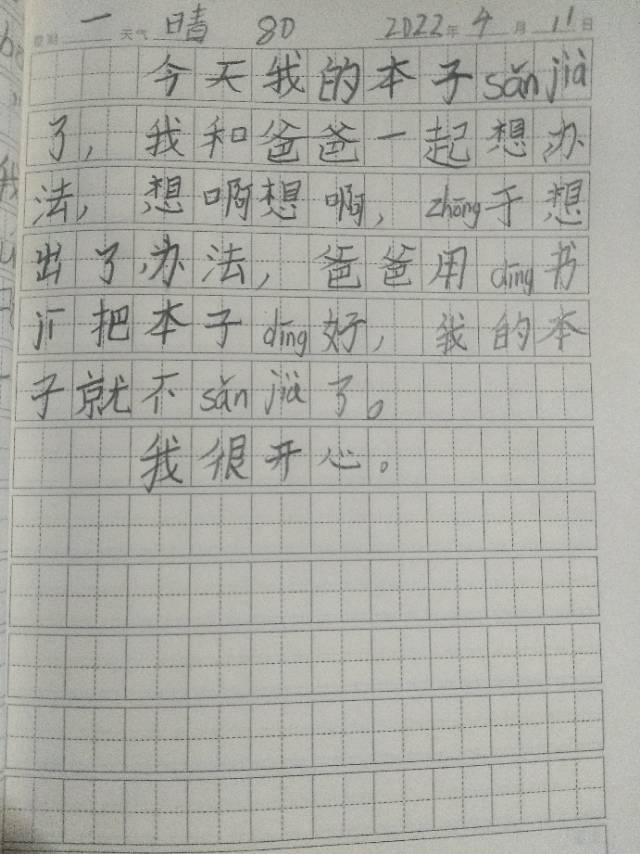 星期 一 天气 晴 80 2022年 4月 11日
今天我的本子sǎn jià
了，我和爸爸一起想办
法，想啊想啊，zhōng于想
出了办法，爸爸用dīng书
jī把本子dīng好，我的本
子就不sǎn jià了。
我很开心。